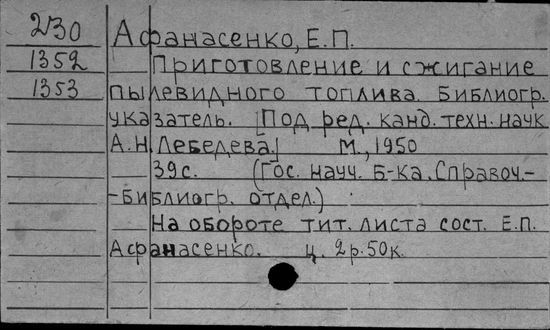 230 Афанасенко, Е.П.
1352 Приготовление и сжигание
1353 пылевидного топлива. Библиогр.
указатель. [Под ред. канд. техн. наук
А.Н. Лебедева.] М., 1950
39с. (Гос. науч. Б-ка. Справоч.-
-библиогр. отдел.)
На обороте тит. листа сост. Е.П.
Афанасенко. ц. 2р.50к.